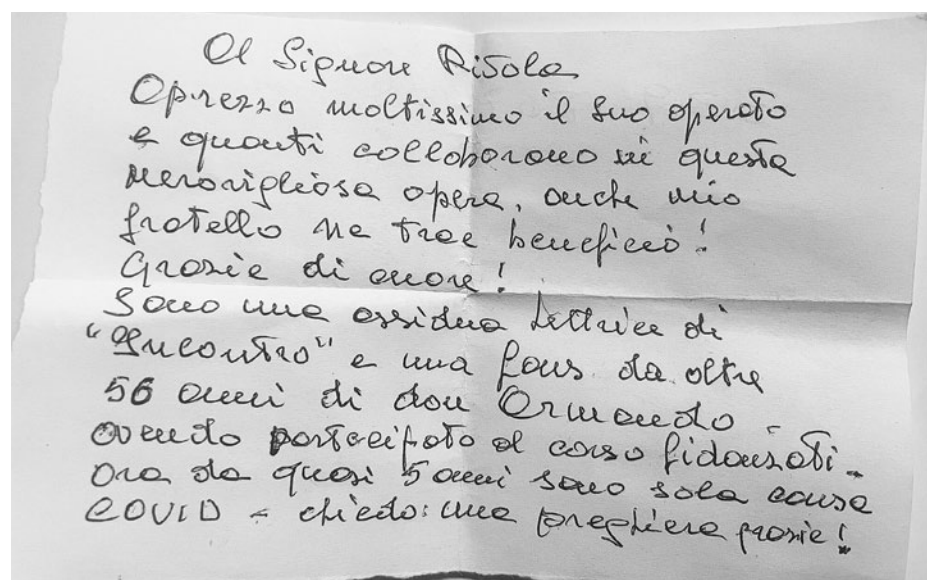 Al Signore Risola
Aprezzo moltissimo il suo operato
e quanti collaborano in questa
meravigliosa opera, anche mio
fratello ne trae beneficio!
Grazie di cuore!
Sono una assidua lettrice di
"Incontro" e una fans da oltre
56 anni di don Armando -
avendo partecipato al corso fidanzati -
Ora da quasi 5 anni sono sola causa
COVID - chiedo: una preghiera grazie!